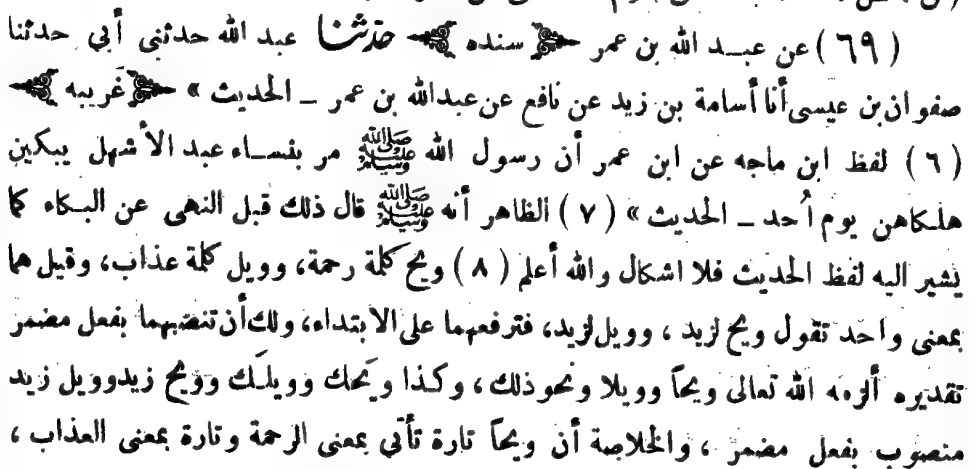 ( ٦٩ ) عن عبد الله بن عمر ﴿ سنده ﴾ حدثنا عبد الله حدثني أبي حدثنا
صفوان بن عيسى أنا أسامة بن زيد عن نافع عن عبدالله بن عمر ــ الحديث » ﴿ غريبه ﴾
( ٦ ) لفظ ابن ماجه عن ابن عمر أن رسول الله ﷺ مر بنساء عبد الأشهل يبكين
هلكاهن يوم أُحد ــ الحديث » ( ٧ ) الظاهر أنه ﷺ قال ذلك قبل النهى عن البكاء كما
يشير اليه لفظ الحديث فلا اشكال والله أعلم ( ٨ ) ويح كلمة رحمة، وويل كلمة عذاب، وقيل هما
بمعنى واحد تقول ويح لزيد ، وويل لزيد، فترفعهما على الابتداء، ولك أن تنصبهما بفعل مضمر
تقديره ألزمه الله تعالى ويحاً وويلا ونحو ذلك، وكذا ويحك وويلك وويح زيد وويل زيد
منصوب بفعل مضمر ، والخلاصة أن ويحاً تارة تأتي بمعنى الرحمة وتارة بمعنى العذاب ،